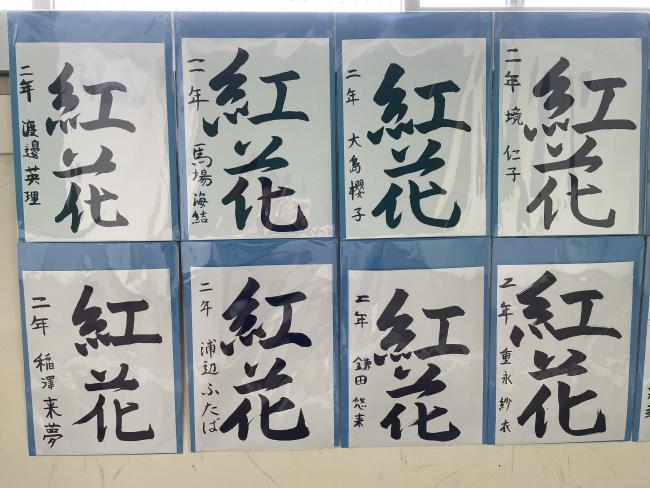 紅花
二年 渡邉英理
紅花
二年 馬場海結
紅花
二年 大島櫻子
紅花
二年 境仁子
紅花
二年 稲澤来夢
紅花
二年 浦辺ふたば
紅花
二年 鎌田悠来
紅花
二年 重永紗衣